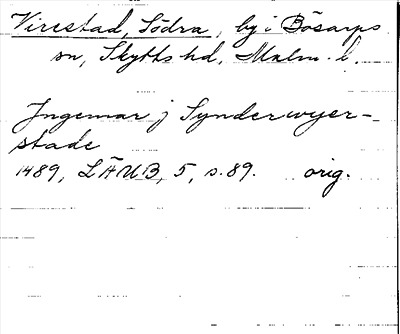 Virestad, Södra, by i Bösarps
sn, Skytts hd, Malm. l.
Jngemar j Synderwyer-
stade
1489, LÄUB, 5, s. 89. orig.